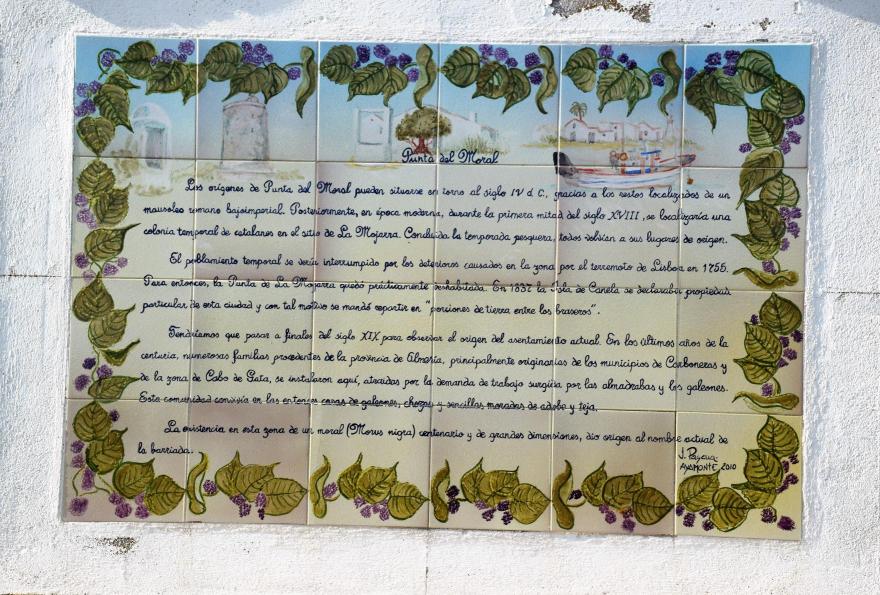 Punta del Moral
Los orígenes de Punta del Moral pueden situarse en torno al siglo IV d.C., gracias a los restos localizados de un
mausoleo romano bajoimperial. Posteriormente, en época moderna, durante la primera mitad del siglo XVIII, se localizaría una
colonia temporal de catalanes en el sitio de La Mojarra. Concluida la temporada pesquera, todos volvían a sus lugares de origen.
El poblamiento temporal se vería interrumpido por los deterioros causados en la zona por el terremoto de Lisboa en 1755.
Para entonces, la Punta de La Mojarra quedó prácticamente deshabitada. En 1837 la Isla de Canela se declaraba propiedad
particular de esta ciudad y con tal motivo se mandó repartir en "porciones de tierra entre los braseros".
Tendríamos que pasar a finales del siglo XIX para observar el origen del asentamiento actual. En los últimos años de la
centuria, numerosas familias procedentes de la provincia de Almería, principalmente originarias de los municipios de Carboneras y
de la zona de Cabo de Gata, se instalaron aquí, atraídas por la demanda de trabajo surgida por las almadrabas y los galeones.
Esta comunidad convivía en las entonces casas de galeones, chozas y sencillas moradas de adobe y teja.
La existencia en esta zona de un moral (Morus nigra) centenario y de grandes dimensiones, dio origen al nombre actual de
la barriada.
AYAMONTE 2010